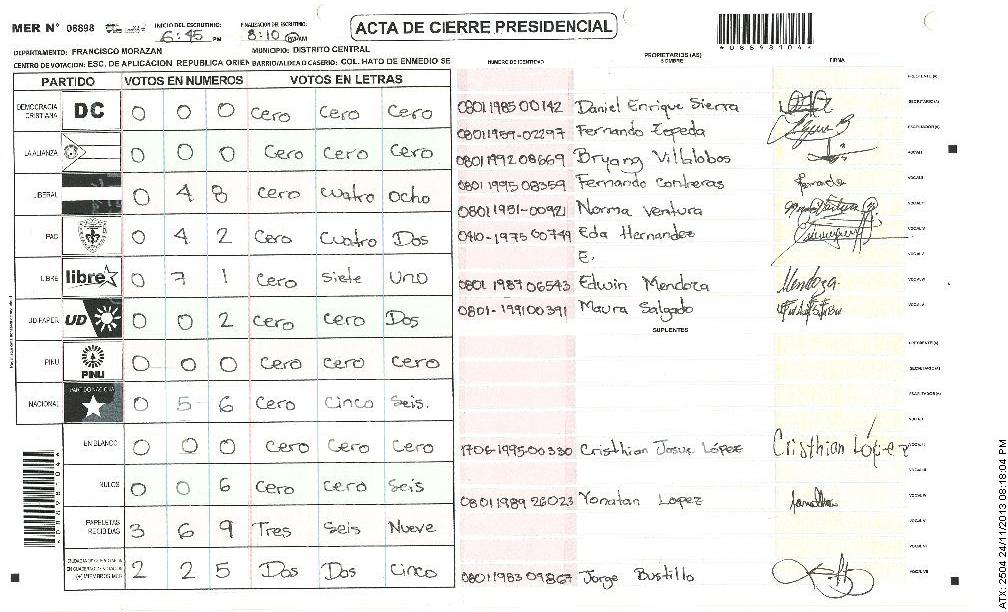 MER N° 06898 INICIO DEL ESCRUTINIO: 6:45 PM FINALIZACION DEL ESCRUTINIO: 8:10 AM
ACTA DE CIERRE PRESIDENCIAL
DEPARTAMENTO: FRANCISCO MORAZAN MUNICIPIO: DISTRITO CENTRAL
CENTRO DE VOTACION: ESC. DE APLICACION REPUBLICA ORIEN BARRIO/ALDEA O CASERIO: COL. HATO DE ENMEDIO SE
PARTIDO VOTOS EN NUMEROS VOTOS EN LETRAS
DEMOCRACIA CRISTIANA DC 0 0 0 Cero Cero Cero
LA ALIANZA 0 0 0 Cero Cero Cero
LIBERAL 0 4 8 Cero Cuatro Ocho
PAC 0 4 2 Cero Cuatro Dos
LIBRE libre 0 7 1 Cero Siete Uno
UD FAPER UD 0 0 2 Cero Cero Dos
PINU PINU 0 0 0 Cero Cero Cero
NACIONAL PARTIDO NACIONAL 0 5 6 Cero Cinco Seis.
EN BLANCO 0 0 0 Cero Cero Cero
NULOS 0 0 6 Cero Cero Seis
PAPELETAS RECIBIDAS 3 6 9 Tres Seis Nueve
2 2 5 Dos Dos Cinco
NUMERO DE IDENTIDAD PROPIETARIOS (AS) NOMBRE FIRMA
PRESIDENTE (A)
0801 1985 00142 Daniel Enrique Sierra SECRETARIO(A)
0801 1959-02297 Fernando Zepeda ESCRUTADOR(A)
0801 1992 08669 Bryang Villalobos VOCAL I
0801 1995 08359 Fernando Contreras VOCAL II
0801 1951-00921 Norma Ventura
0410-1975 00749 Eda Hernandez
E.
0801 1987 06543 Edwin Mendoza Mendoza
0801-1991 00391 Maura Salgado
SUPLENTES
PRESIDENTE (A)
SECRETARIO(A)
ESCRUTADOR(A)
1706-1995-00330 Cristhian Josue López Cristhian López
0801 1989 26023 Yonatan Lopez
0801 1983 09867 Jorge Bustillo
ATX: 2504 24/11/2013 08:18:04 PM